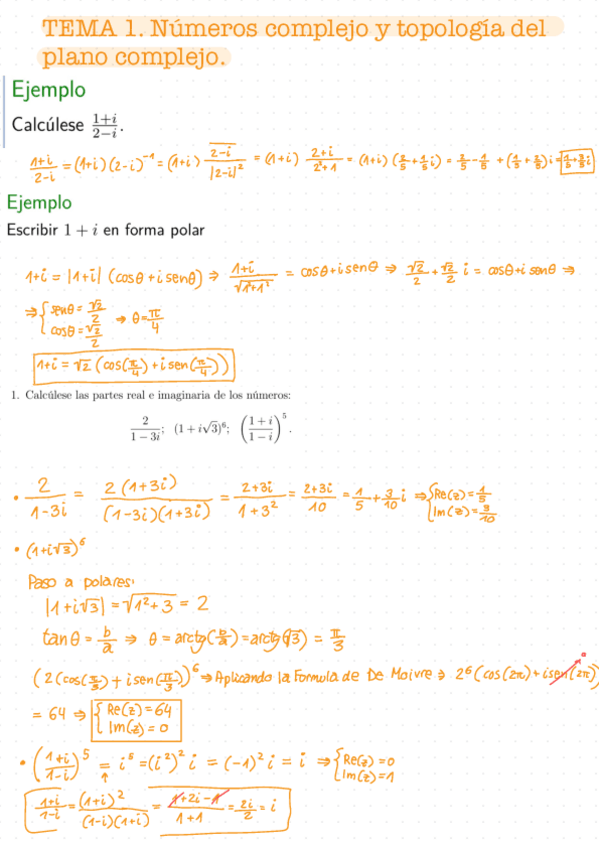 TEMA 1. Números complejo y topología del
plano complejo.
Ejemplo
Calcúlese (1+i)/(2−i).
(1+i)/(2−i) = (1+i)(2−i)⁻¹ = (1+i) \overline{2−i}/|2−i|² = (1+i) (2+i)/(2²+1) = (1+i)(2/5 + 1/5 i) = 2/5 − 1/5 + (1/5 + 2/5)i = 1/5 + 3/5 i
Ejemplo
Escribir 1 + i en forma polar
1+i = |1+i| (cosθ + i senθ) ⇒ (1+i)/√(1²+1²) = cosθ + i senθ ⇒ √2/2 + √2/2 i = cosθ + i senθ ⇒
⇒ { senθ = √2/2
cosθ = √2/2 ⇒ θ = π/4
1+i = √2 (cos(π/4) + i sen(π/4))
1. Calcúlese las partes real e imaginaria de los números:
2/(1−3i); (1+i√3)⁶; ((1+i)/(1−i))⁵.
• 2/(1−3i) = 2(1+3i)/((1−3i)(1+3i)) = (2+3i)/(1+3²) = (2+3i)/10 = 1/5 + 3/10 i ⇒ { Re(z) = 1/5
Im(z) = 3/10
• (1+i√3)⁶
Paso a polares:
|1+i√3| = √(1²+3) = 2
tanθ = b/a ⇒ θ = arctg(b/a) = arctg(√3) = π/3
(2(cos(π/3) + i sen(π/3)))⁶ ⇒ Aplicando la Formula de De Moivre ⇒ 2⁶(cos(2π) + i sen(2π))
= 64 ⇒ { Re(z) = 64
Im(z) = 0
• ((1+i)/(1−i))⁵ = i⁵ = (i²)² i = (−1)² i = i ⇒ { Re(z) = 0
↑ Im(z) = 1
(1+i)/(1−i) = (1+i)²/((1−i)(1+i)) = (1+2i−1)/(1+1) = 2i/2 = i